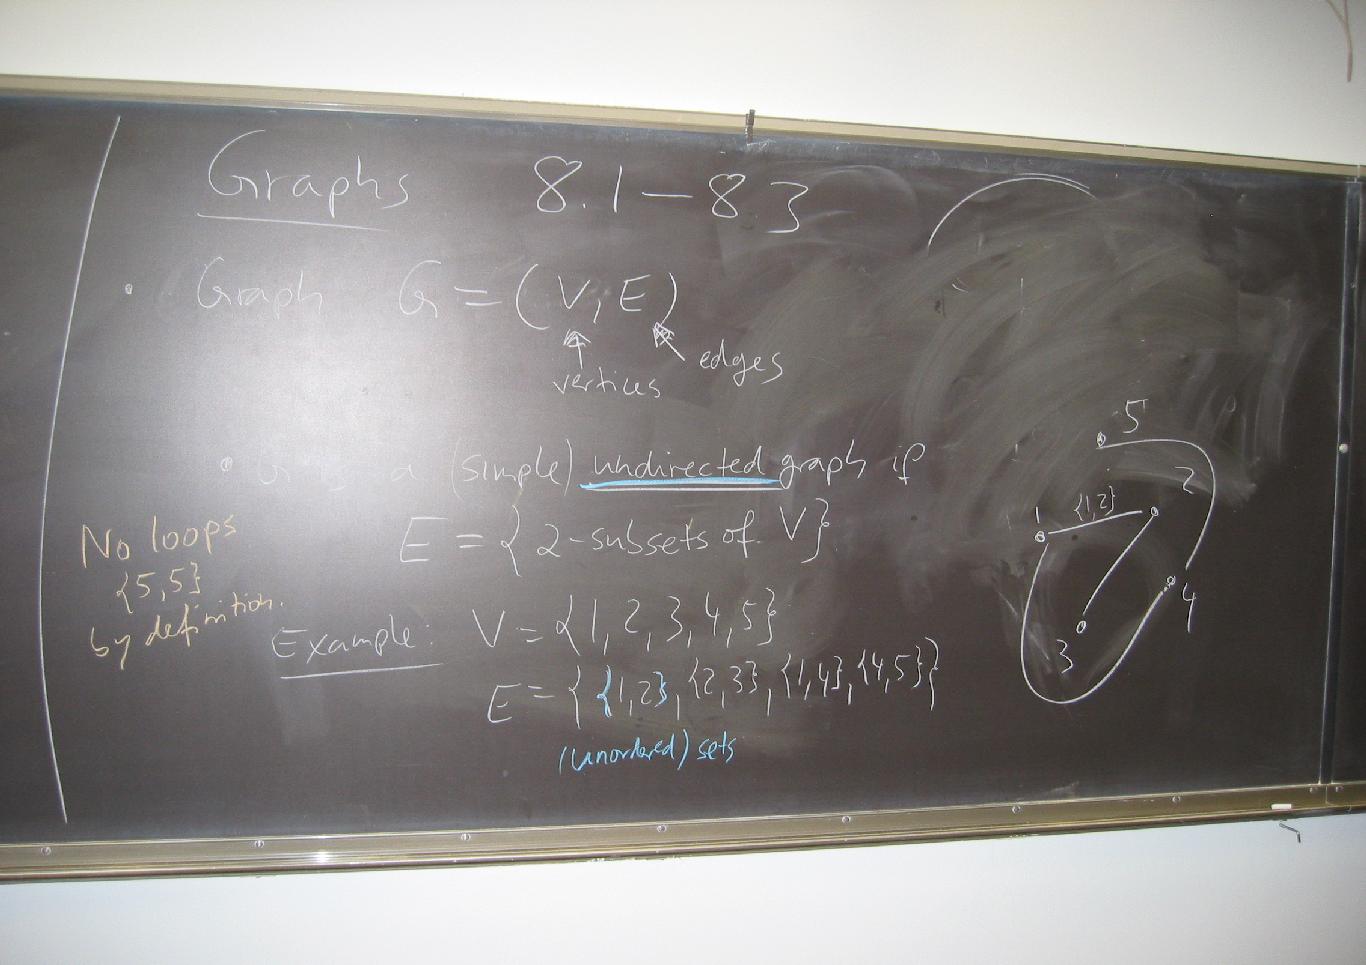 Graphs 8.1 – 8.3
Graph G = (V, E)
vertices
edges
G is a (simple) undirected graph if
E = {2-subsets of V}
No loops
{5,5}
by definition.
Example: V = {1, 2, 3, 4, 5}
E = {{1,2}, {2,3}, {1,4}, {4,5}}
(unordered) sets
5
2
1
{1,2}
4
3